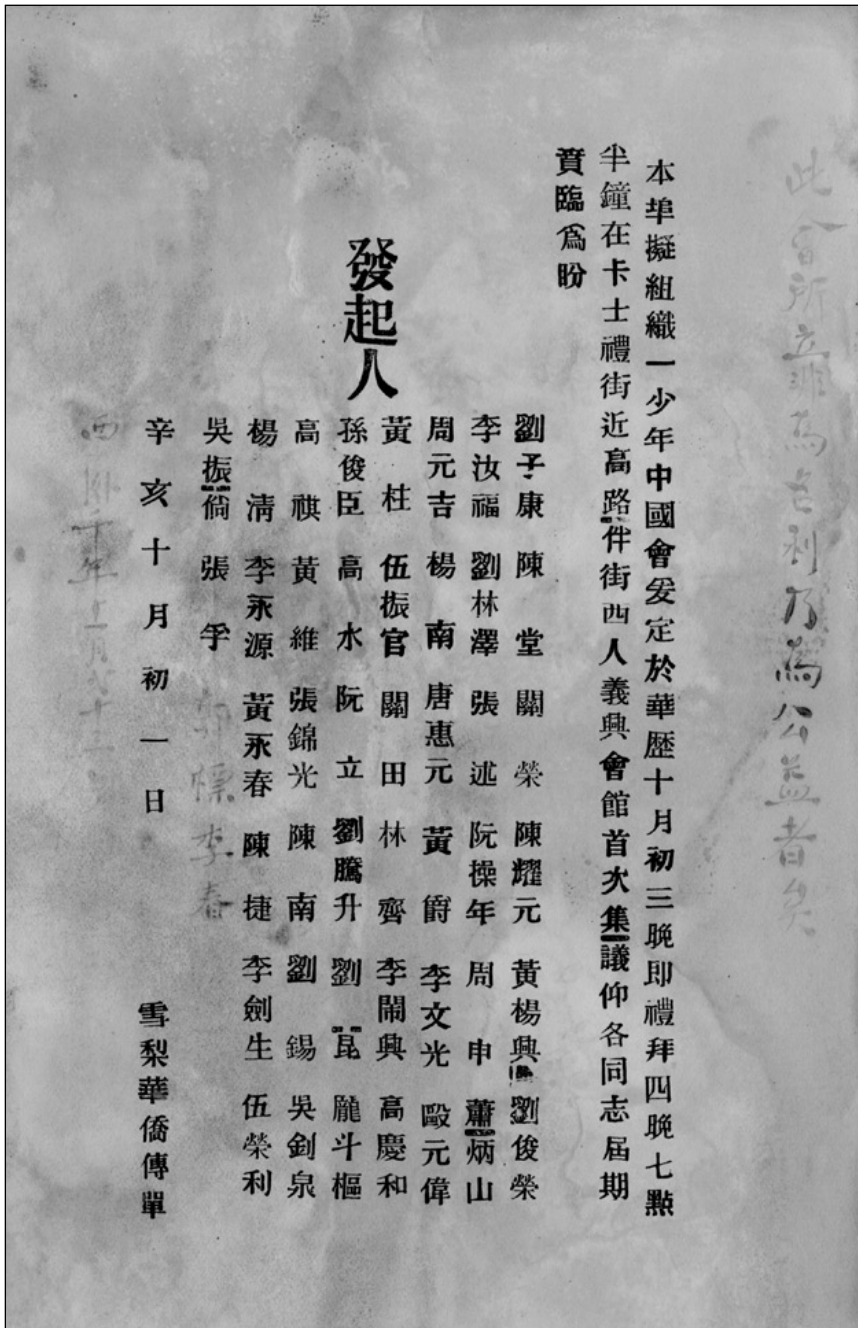 此會所立非為己利乃為公益者矣
本埠擬組織一少年中國會爰定於華歷十月初三晚即禮拜四晚七點
半鐘在卡士禮街近高路件街四人義興會館首次集議仰各同志屆期
賁臨為盼
發起人
劉子康 陳堂 關榮 陳耀元 黃楊興 劉俊榮
李汝福 劉林澤 張述 阮操年 周申 蕭炳山
周元吉 楊南 唐惠元 黃爵 李文光 毆元偉
黃柱 伍振官 關田 林齊 李開興 高慶和
孫俊臣 高水 阮立 劉騰升 劉昆 龐斗樞
高祺 黃維 張錦光 陳南 劉錫 吳釗泉
楊清 李永源 黃永春 陳捷 李劍生 伍榮利
吳振倘 張孚 李春
辛亥十月初一日
雪梨華僑傳單